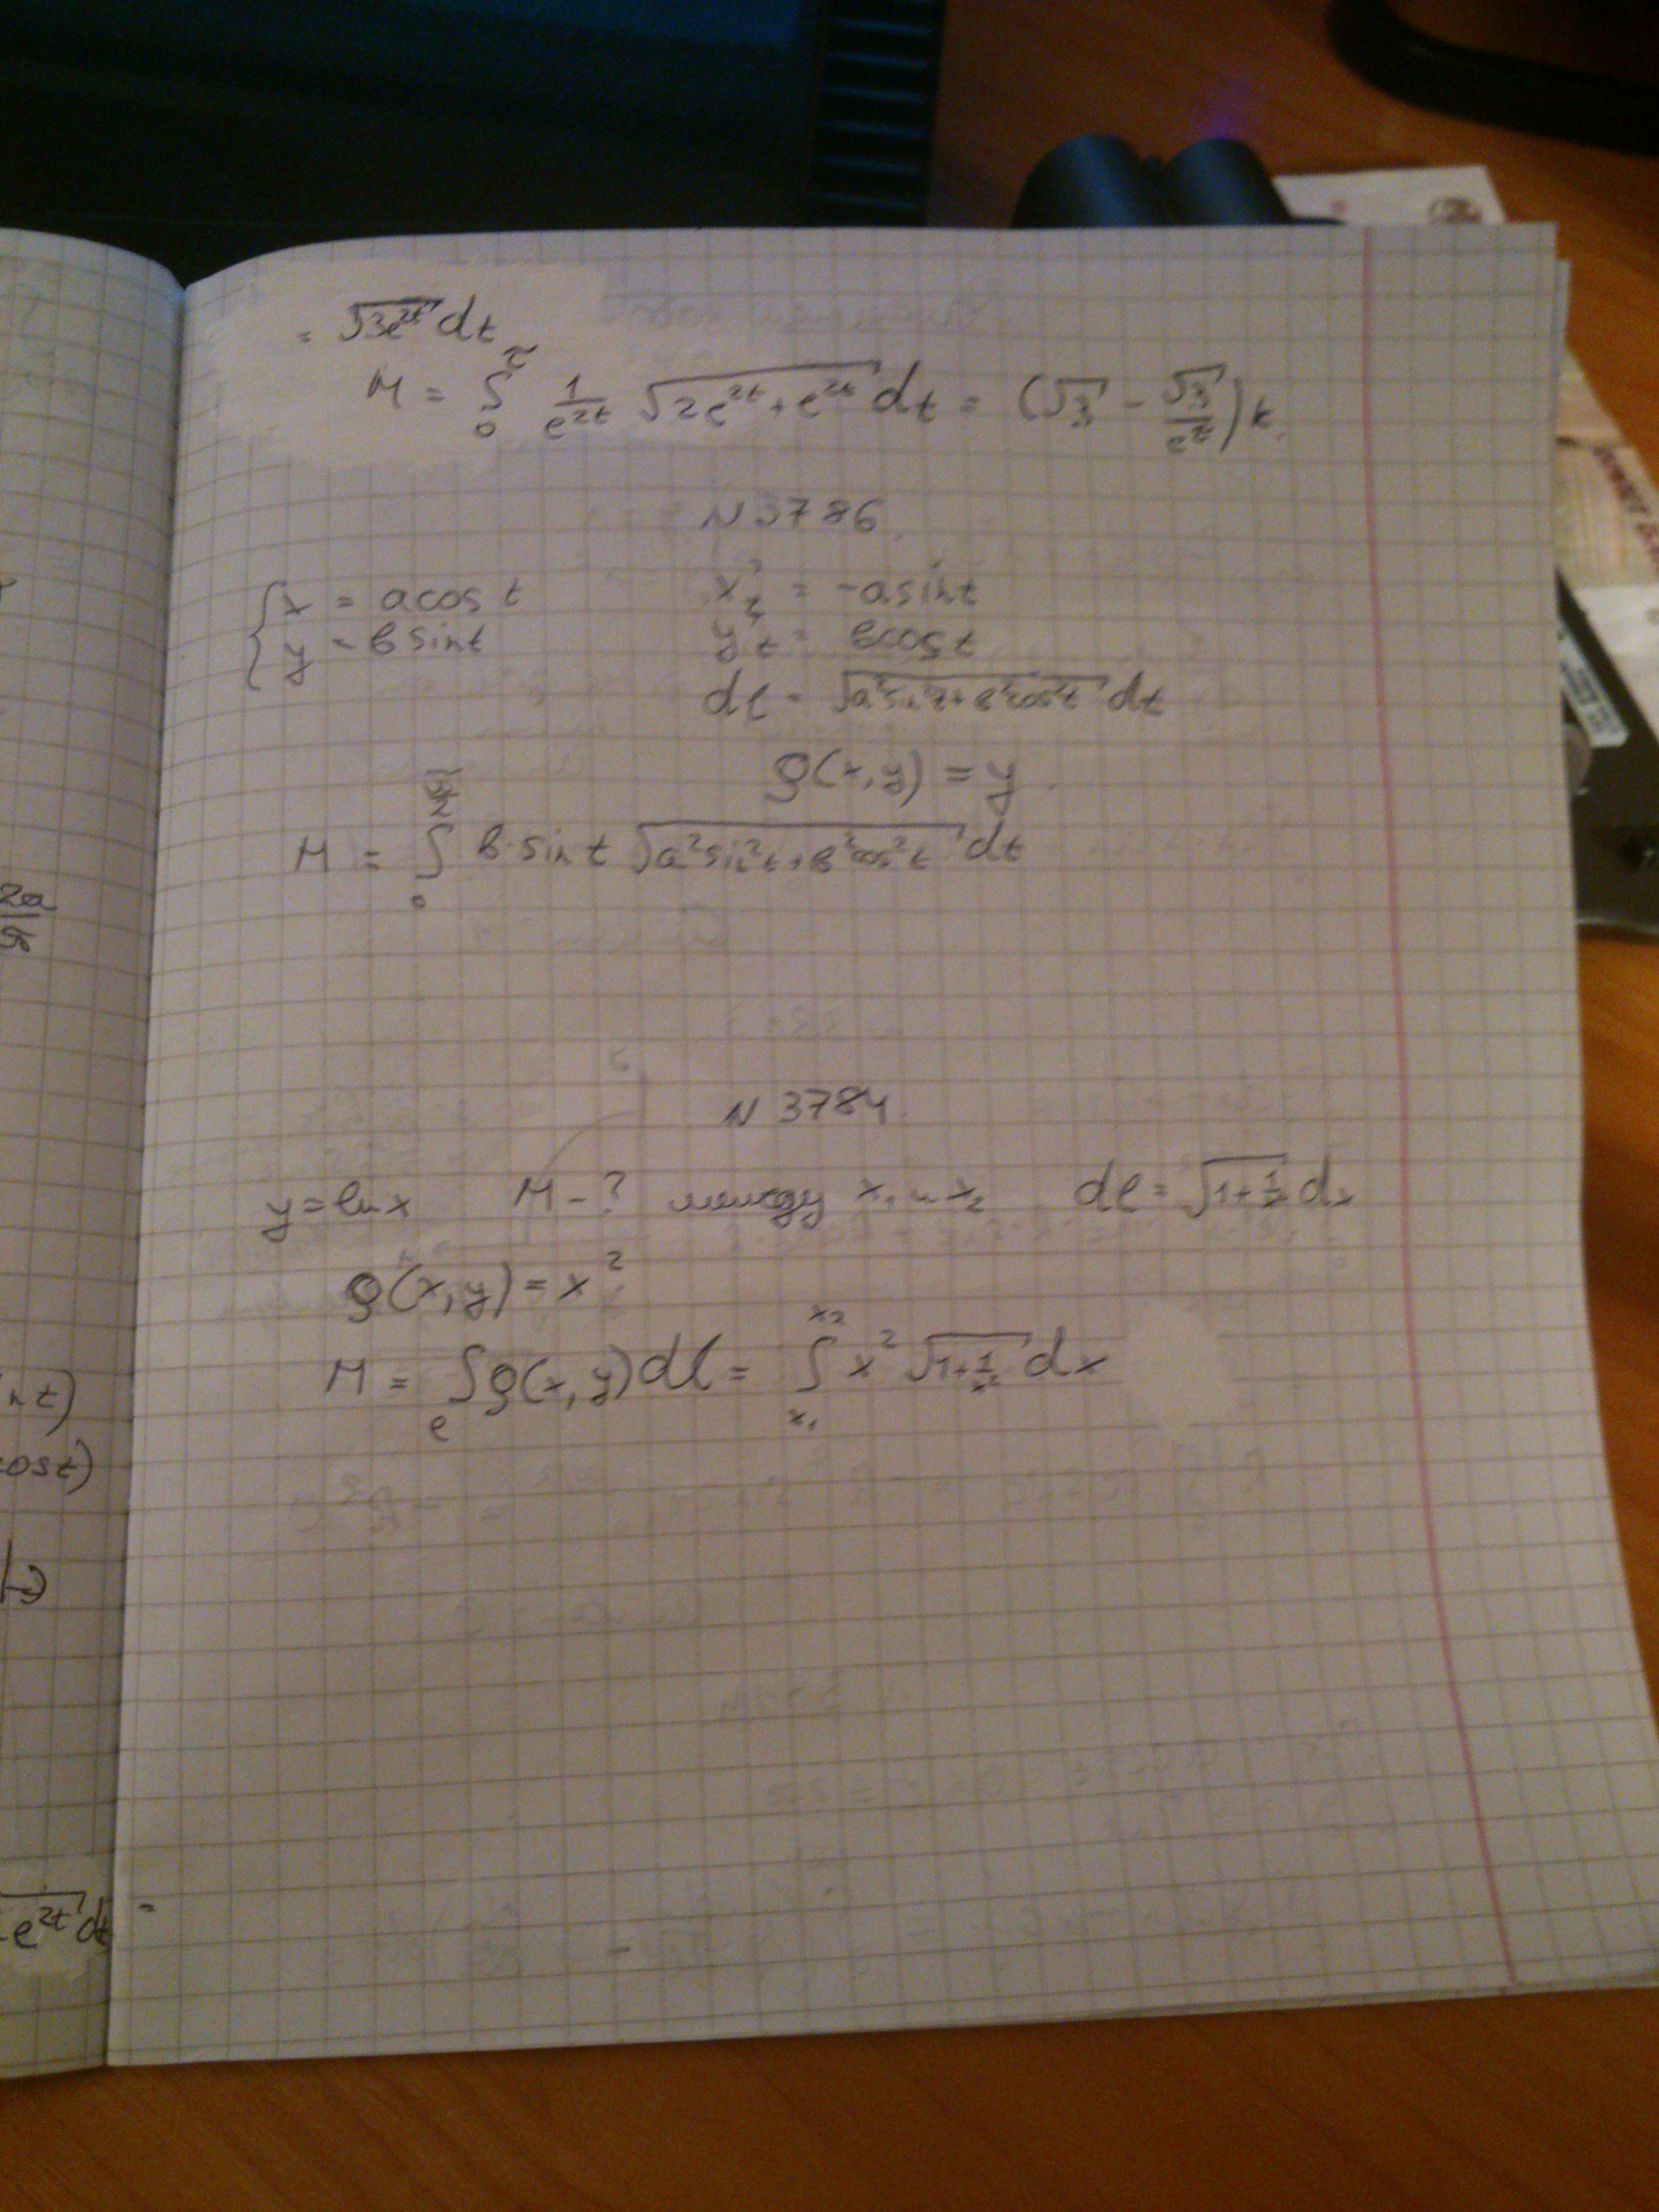 = √3e^{2t} dt
M = ∫_0^τ 1/e^{2t} √2e^{2t}+e^{2t} dt = (√3 - √3/e^τ) k.
N 3786.
{x = a cos t
x'_t = -a sin t
{y = в sin t
y'_t = в cos t
dl = √a²sin²t+в²cos²t dt
ρ(x,y) = y.
M = ∫ в·sin t √a²sin²t+в²cos²t dt
N 3784.
y = ln x M - ? между x₁ и x₂ dl = √1+1/x² dx
ρ(x,y) = x²
M = ∫_l ρ(x,y) dl = ∫_{x₁}^{x₂} x² √1+1/x² dx
2a/π
nt)
cost)
e^{2t} dt =